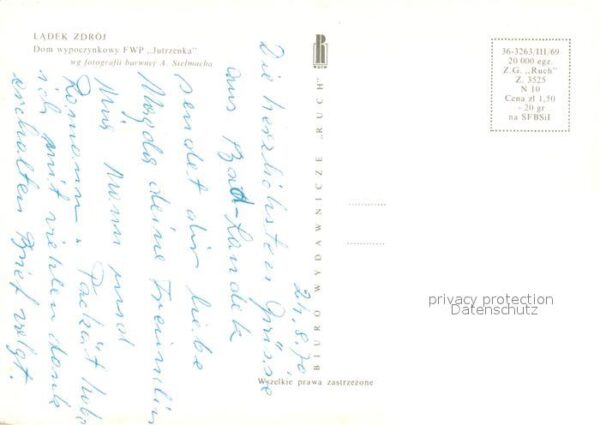 LĄDEK ZDRÓJ
Dom wypoczynkowy FWP „Jutrzenka”
wg fotografii barwnej A. Stelmacha
Die herzlichsten Grüsse
aus Bad-Landek
sendet dir liebe
Magda deine Freundin
Mia Mann und
Romann. Packät habe
ich mit viehlen dank
erchalten Brief volgt.
24.8.70
BIURO WYDAWNICZE „RUCH”
Wszelkie prawa zastrzeżone
36-3263/III/69
20 000 egz.
Z.G. „Ruch”
Z. 3525
N 10
Cena zł 1,50
- 20 gr
na SFBSiI
privacy protection
Datenschutz